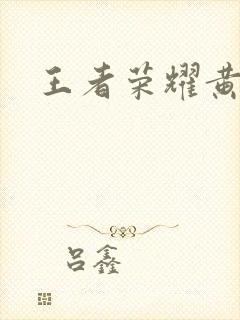 王者荣耀黄
吕鑫